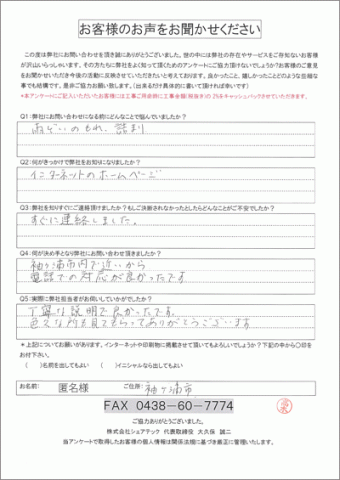 お客様のお声をお聞かせください
この度は弊社にお問い合わせを頂き誠にありがとうございました。世の中には弊社の存在やサービスをご存知ないお客様
が沢山いらっしゃいます。その方たちに弊社をよく知って頂くためのアンケートにご協力頂けないでしょうか?お客様のご意見
をお聞かせいただき今後の活動に反映させていただきたいと考えております。良かったこと、嬉しかったことどのような些細な
事でも結構です。是非ご協力お願い致します。(出来るだけ具体的に書いて頂ければ幸いです)
*本アンケートにご記入いただいたお客様には工事ご用命時に工事金額(税抜き)の2%をキャッシュバックさせていただきます。
Q1:弊社にお問い合わせになる前にどんなことで悩んでいましたか?
雨どいのもれ、詰まり
Q2:何がきっかけで弊社をお知りになりましたか?
インターネットのホームページ
Q3:弊社を知りすぐにご連絡頂けましたか?もしご決断されなかったとしたらどんなことがご不安でしたか?
すぐに連絡しました。
Q4:何が決め手となり弊社にお問い合わせ頂きましたか?
袖ヶ浦市内で近いから
電話での対応が良かったです
Q5:実際に弊社担当者がお伺いしていかがでしたか?
丁寧な説明で良かったです。
色々な所も見てもらってありがとうございます
*上記についてお願いがあります。インターネットや印刷物に掲載させて頂いてもよろしいでしょうか?下記の中から〇印を
お付下さい。
( )名前を出してもよい ( )イニシャルなら出してもよい
お名前: 匿名様 ご住所: 袖ヶ浦市
FAX 0438-60-7774
ご協力ありがとうございました。
株式会社シェアテック 代表取締役 大久保 誠二
当アンケートで取得したお客様の個人情報は関係法規に基づき厳正に管理いたします。